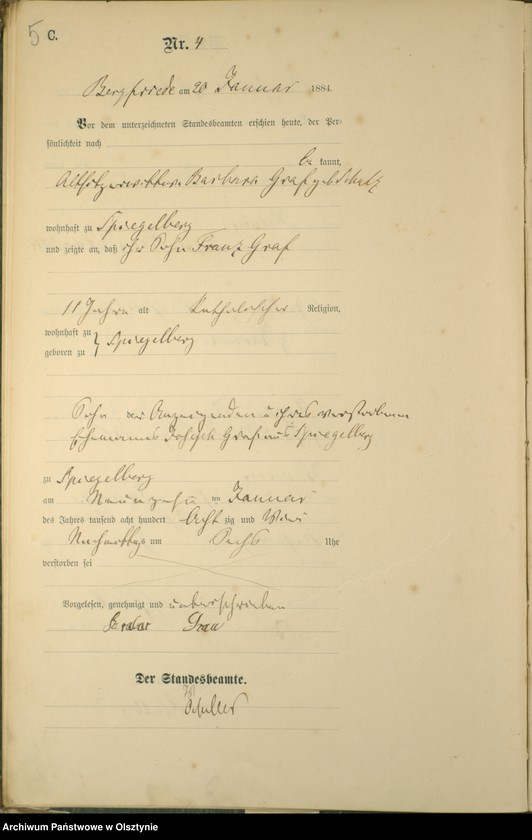 5 C.
Nr. 4
Bergfriede am 20 Januar 1884.
Vor dem unterzeichneten Standesbeamten erschien heute, der Per-
sönlichkeit nach
be kannt,
Altsitzerwittwe Barbara Graf geb Schulz
wohnhaft zu Spiegelberg
und zeigte an, daß ihr Sohn Franz Graf
11 Jahre alt katholischer Religion,
wohnhaft zu
geboren zu } Spiegelberg
Sohn der Anzeigenden u ihres verstorbenen
Ehemannes Joseph Graf aus Spiegelberg
zu Spiegelberg
am Neunzehn ten Januar
des Jahres tausend acht hundert Acht zig und Vier
Nachmittags um Sechs Uhr
verstorben sei
Vorgelesen, genehmigt und unterschrieben
Der Standesbeamte.
Archiwum Państwowe w Olsztynie